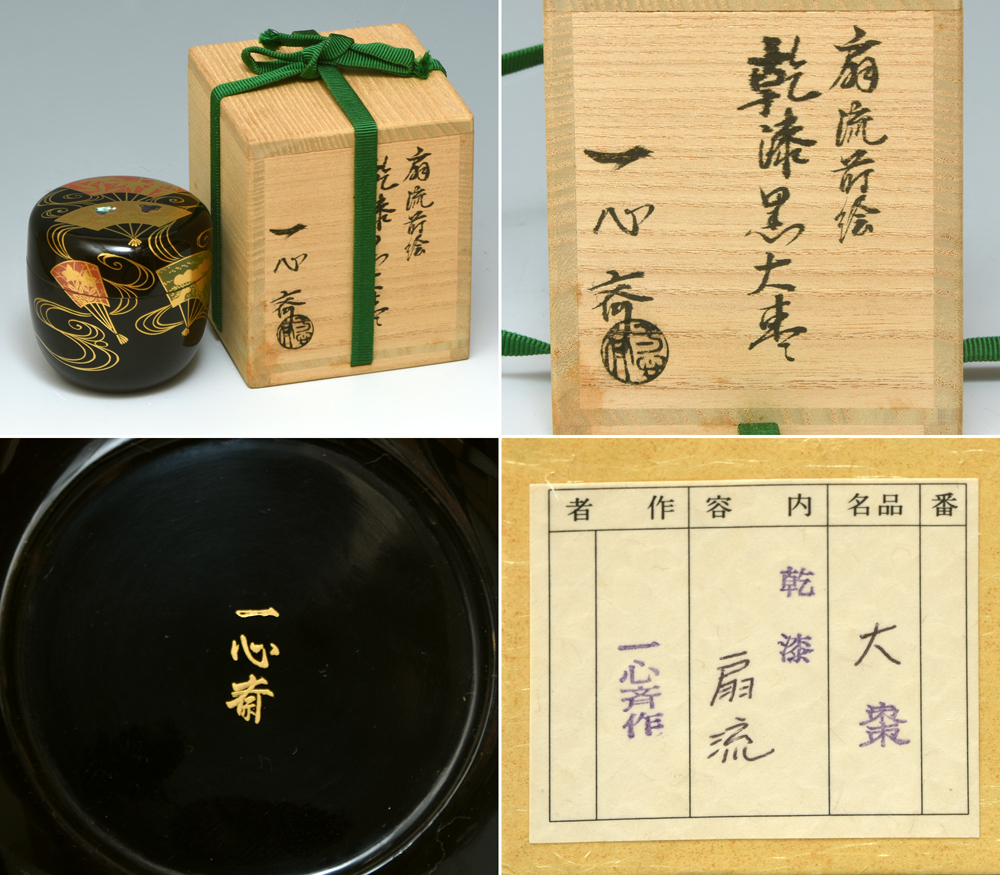 扇流蒔絵
乾漆黒大棗
一心斎
扇流蒔絵
乾漆黒大棗
一心斎
一心斎
番
品名
内容
作者
大棗
乾漆
扇流
一心斉作